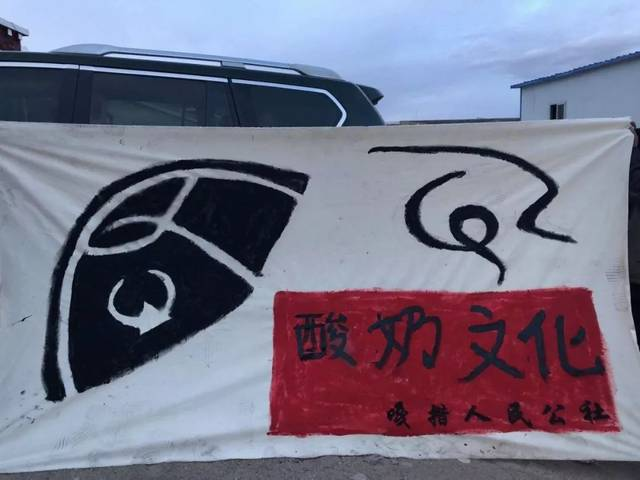 酸奶文化
嘎措人民公社